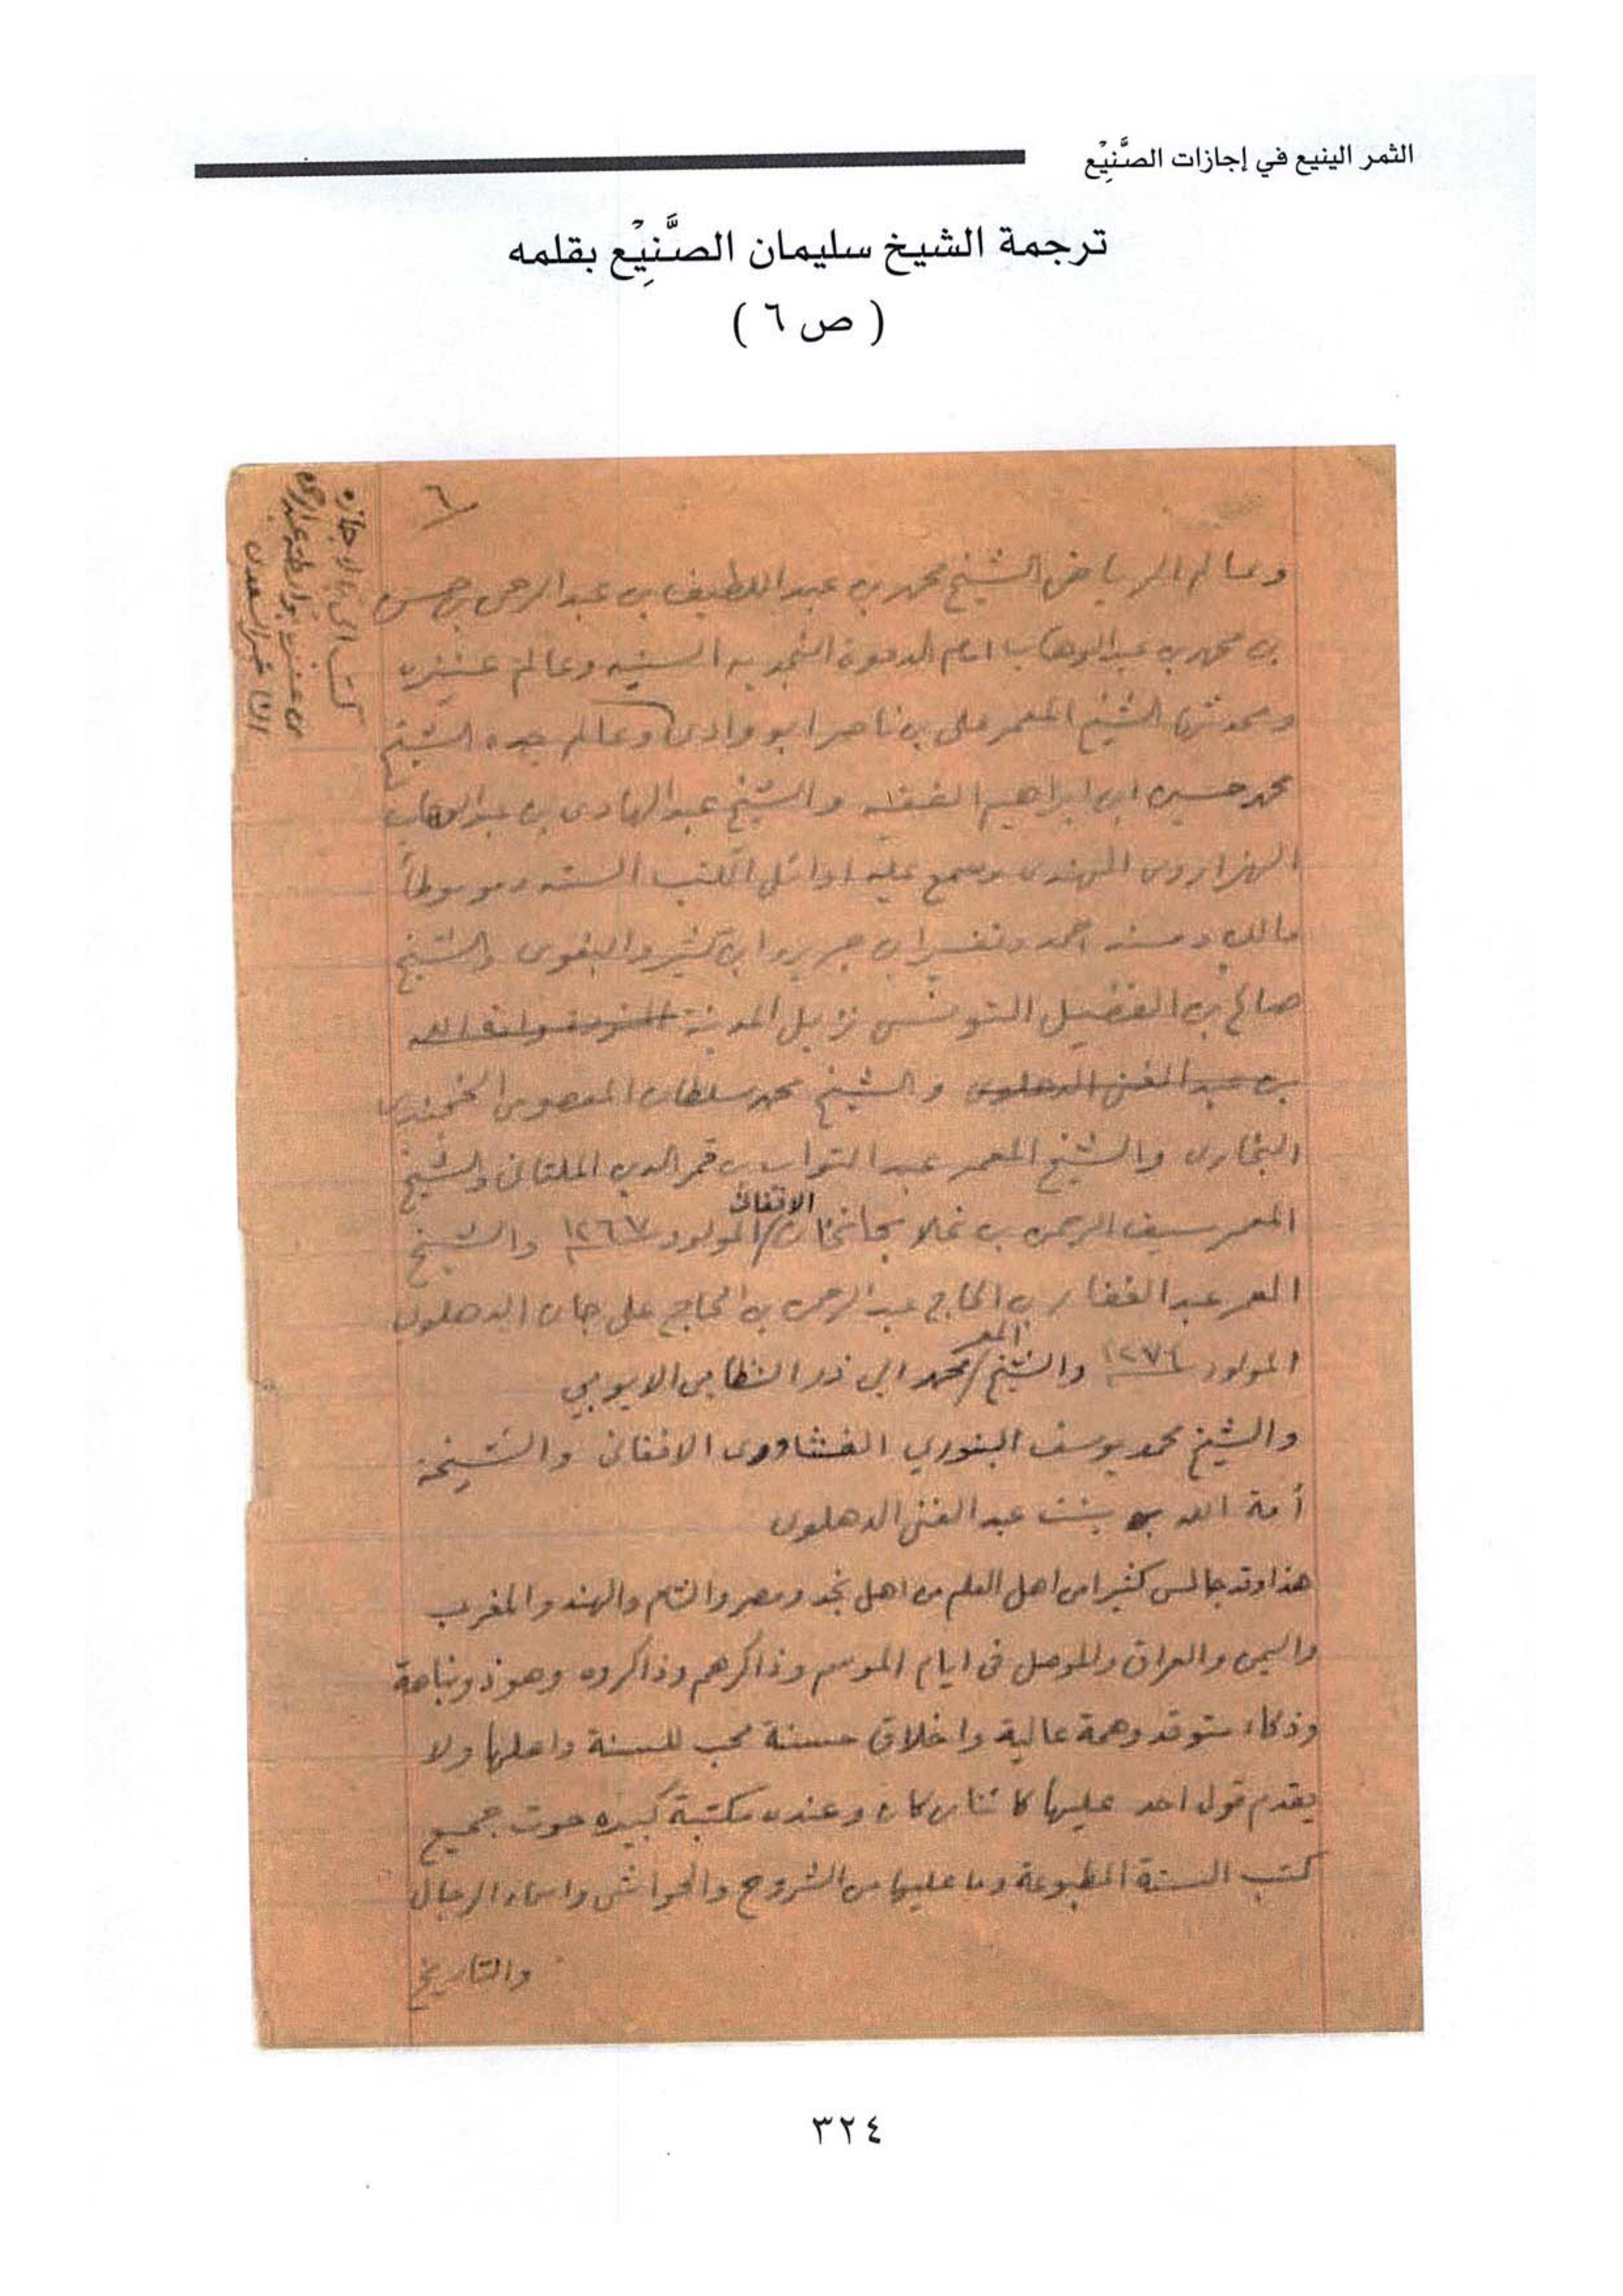 الثمر الينيع في إجازات الصَّنِيْع
ترجمة الشيخ سليمان الصَّنِيْع بقلمه
( ص ٦ )
٦
وعالم الرياض الشيخ محمد بن عبد اللطيف بن عبد الرحمن بن حسن
بن محمد بن عبد الوهاب امام الدعوة النجديه السنيه وعالم عنيزه
ومحدثها الشيخ المعمر على بن ناصر ابو وادى وعالم جده الشيخ
محمد حسين ابن ابراهيم الفقيه والشيخ عبد الهادى بن عبد الوهاب
الهزاروى الهندى وسمع عليه اوائل الكتب السته وموطأ
مالك ومسند احمد وتفسير ابن جرير وابن كثير والبغوى والشيخ
صالح بن الفضيل التونسى نزيل المدينة
بن عبد الغنى الدهلوى والشيخ محمد سلطان المعصومى الخجندى
البخارى والشيخ المعمر عبد التواب بن قمر الدين الملتانى والشيخ
المعمر سيف الرحمن بن غلام جانخان الافغانى المولود ١٢٦٧ والشيخ
المعمر عبد الغفار بن الحاج عبد الرحمن بن الحاج على جان الدهلوى
المولود ١٢٧٤ والشيخ المعمر محمد ابى ذر النظامى الايوبي
والشيخ محمد يوسف البنوري الفشاورى الافغانى والشيخة
أمة الله بنت عبد الغنى الدهلوى
هذا وقد جالس كثيرا من اهل العلم من اهل نجد ومصر والشام والهند والمغرب
واليمن والعراق والموصل فى ايام الموسم وذاكرهم وذاكروه وهو ذو نباهة
وذكاء متوقد وهمة عالية واخلاق حسنة محب للسنة واهلها ولا
يقدم قول احد عليها كائنا من كان وعنده مكتبة كبيره حوت جميع
كتب السنة المطبوعة وما عليها من الشروح والحواشى واسماء الرجال
والتاريخ
٣٢٤